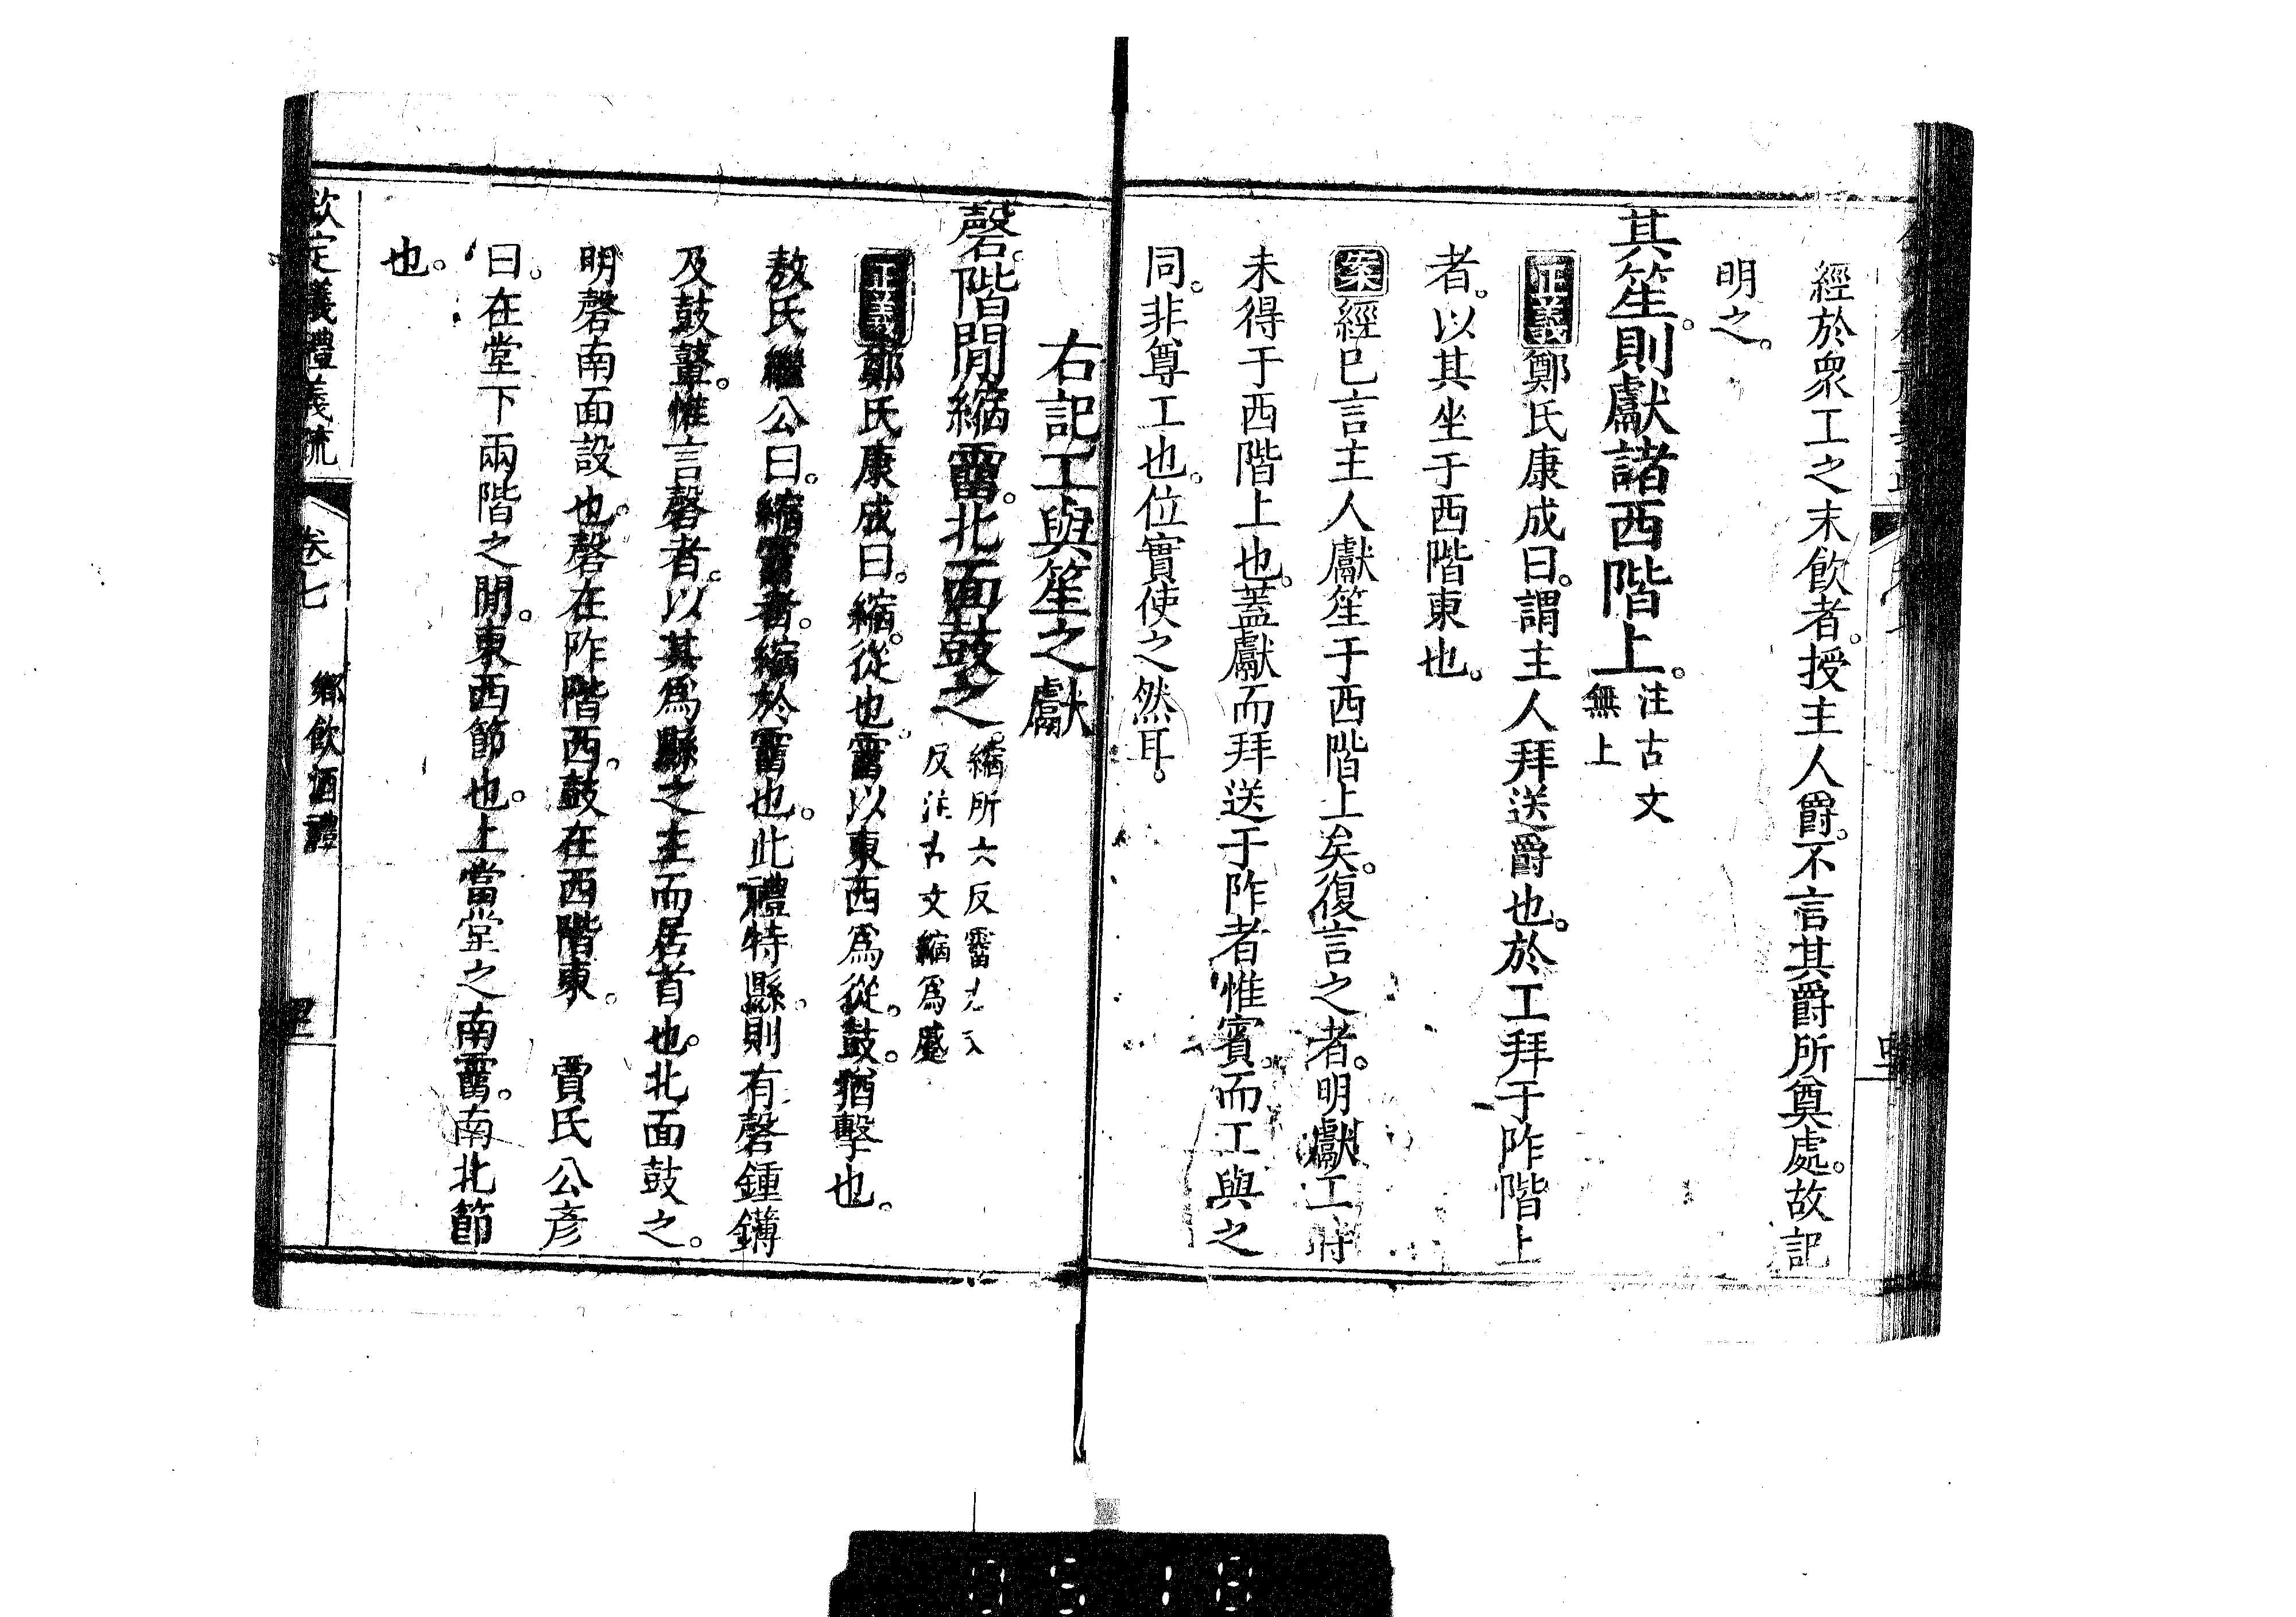 經於衆工之末飮者。授主人爵。不言其爵所奠處。故記
明之。
其笙。則獻諸西階上。注古文無上
正義鄭氏康成曰。謂主人拜送爵也。於工拜于阼階上
者。以其坐于西階東也。
案經已言主人獻笙于西階上矣。復言之者。明獻工時
未得于西階上也。蓋獻而拜送于阼者惟賓。而工與之
同。非尊工也。位實使之然耳。
右記工與笙之獻
磬。階閒縮霤。北面鼓之。縮所六反霤力又反注古文縮爲蹙
正義鄭氏康成曰。縮。從也。霤以東西爲從。鼓。猶擊也。
敖氏繼公曰。縮霤者。縮於霤也。此禮特縣。則有磬鍾鑮
及鼓鼙。惟言磬者。以其爲縣之主而居首也。北面鼓之。
明磬南面設也。磬在阼階西。鼓在西階東。 賈氏公彥
曰。在堂下兩階之閒。東西節也。上當堂之南霤。南北節
也。
欽定儀禮義疏 卷七 鄉飮酒禮